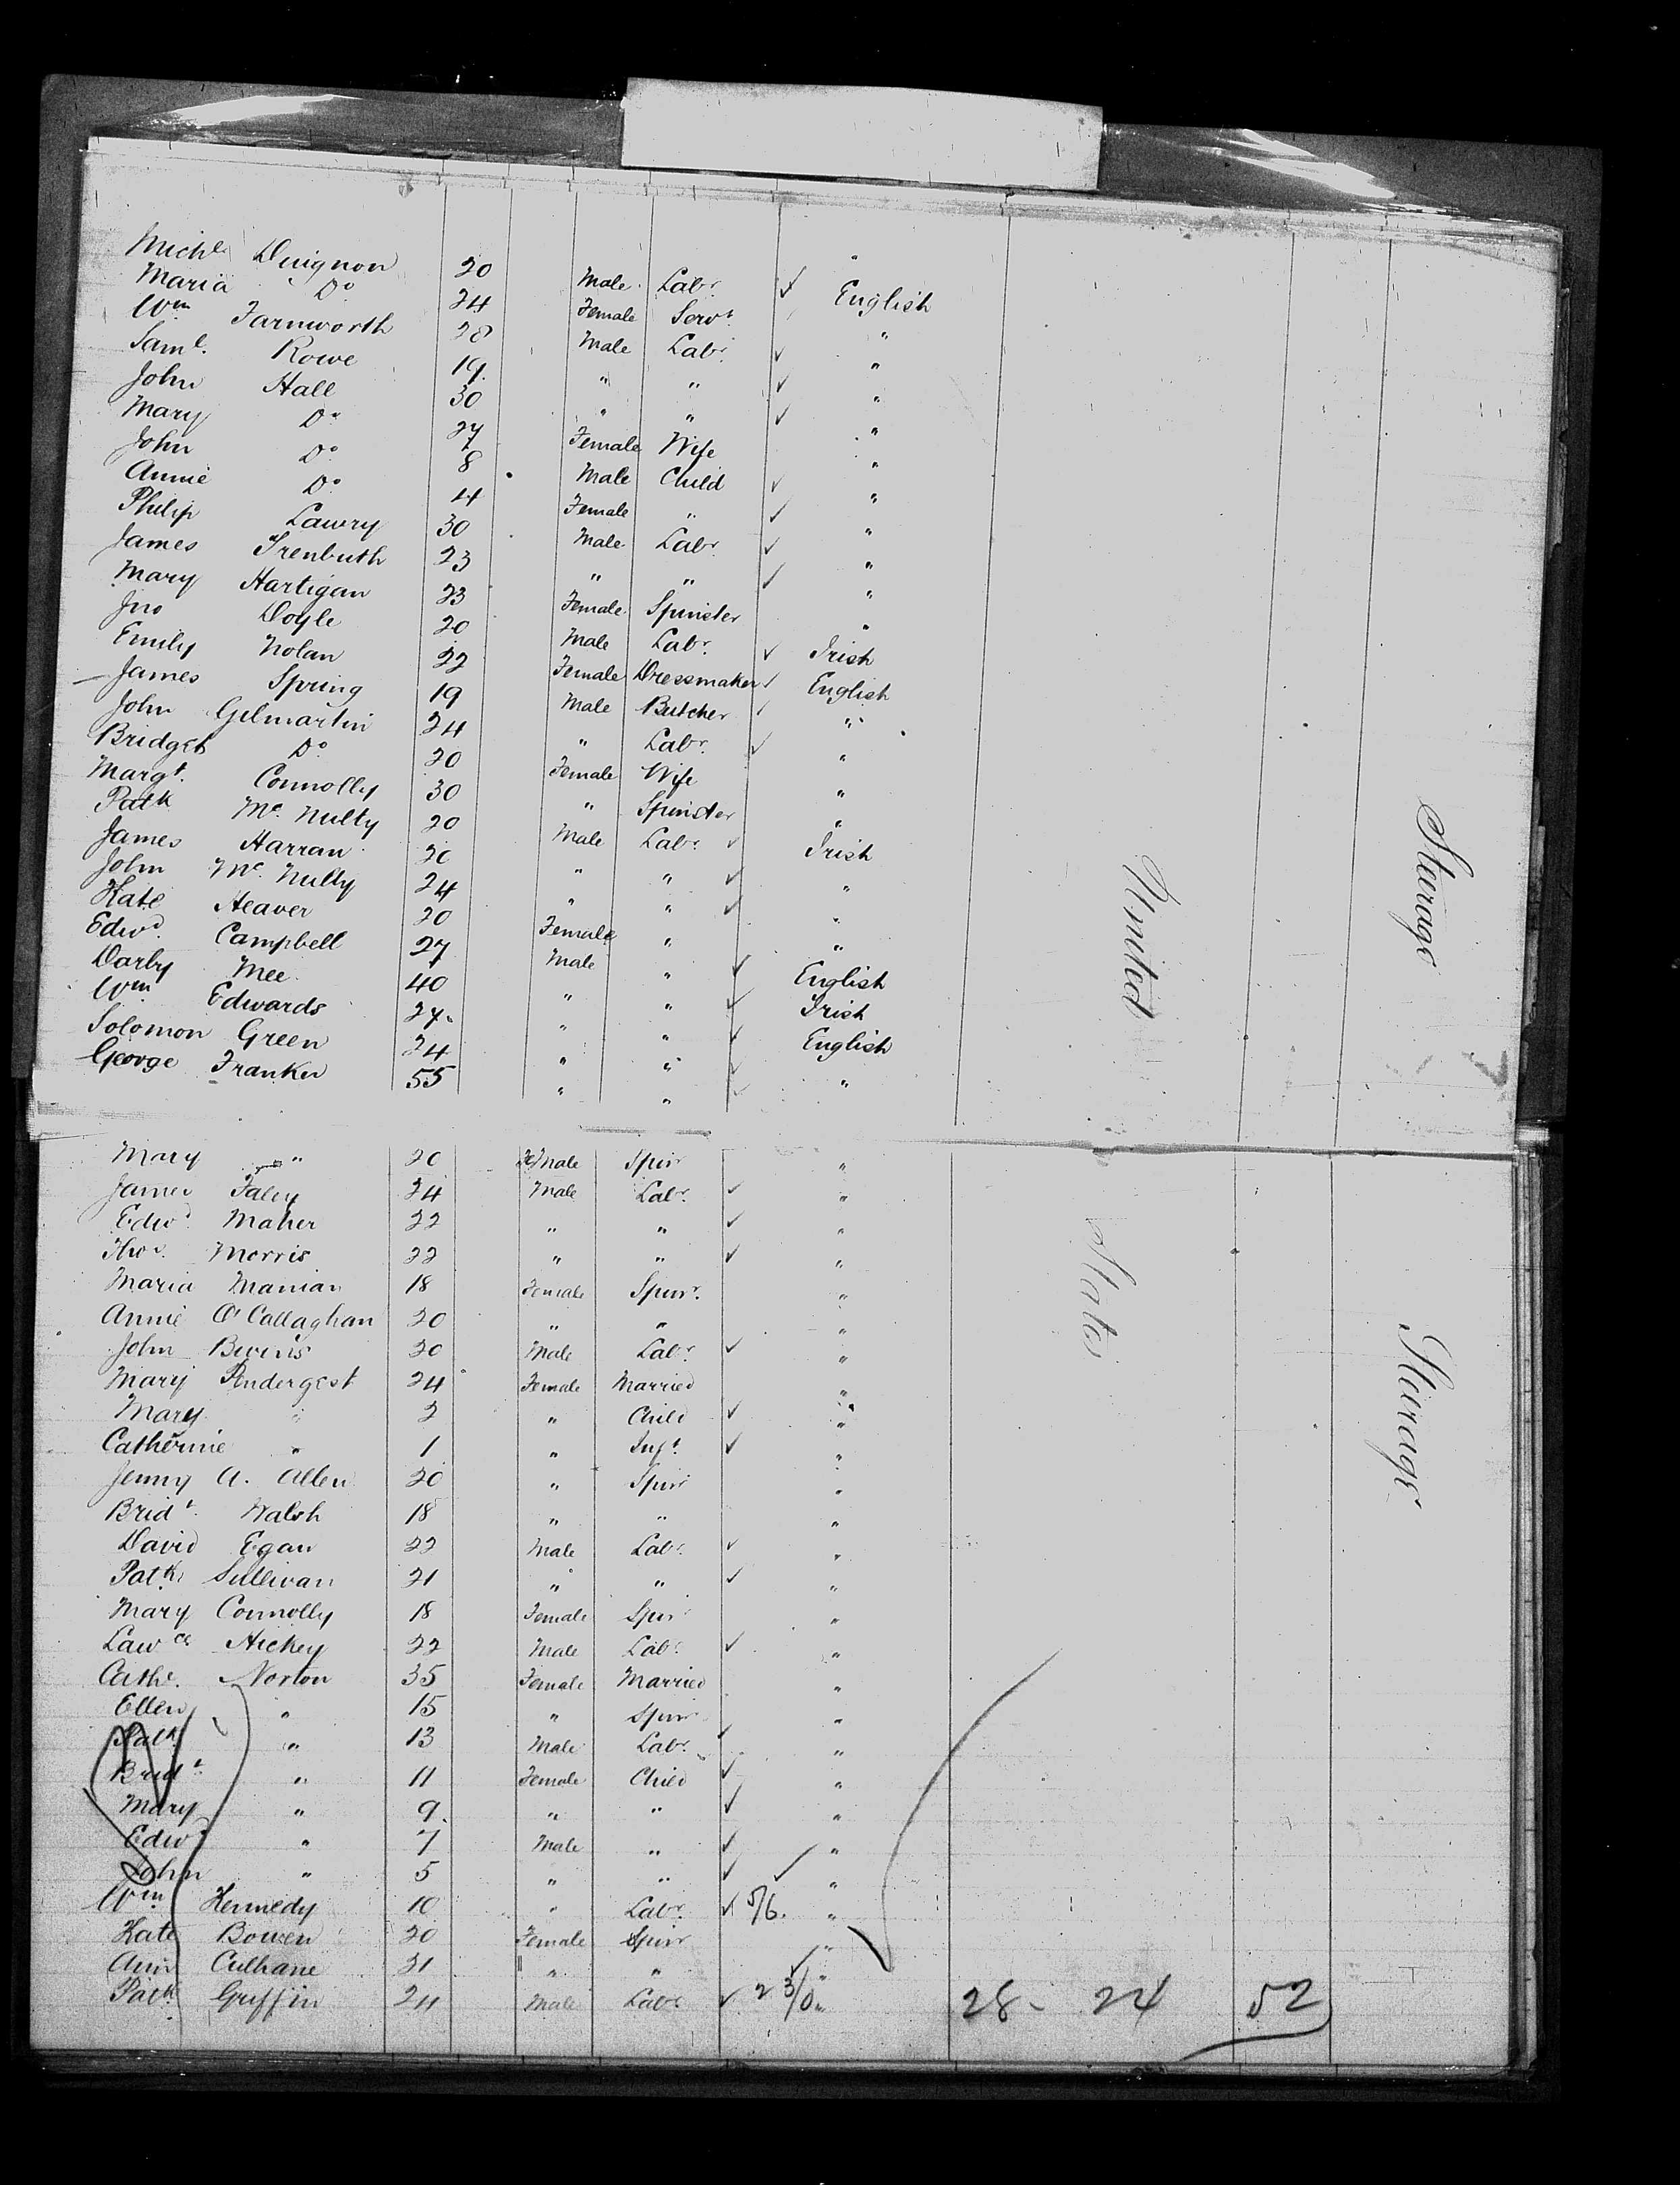 Michl Duignon 20 Male Labr. ✓ "
Maria Do 24 Female Servt. English
Wm Farnworth 28 Male Labr. ✓ "
Saml. Rowe 19. " " ✓ "
John Hall 30 " " ✓ "
Mary Do 27 Female Wife "
John Do 8 Male Child ✓ "
Annie Do 4 Female " ✓ "
Philip Lawry 30 Male Labr. ✓ "
James Trenbuth 23 " " ✓ "
Mary Hartigan 23 Female Spinster "
Jno Doyle 20 Male Labr. ✓ "
Emily Nolan 22 Female Dressmaker ✓ Irish
James Spring 19 Male Butcher ✓ English
John Gilmartin 24 " Labr. ✓ "
Bridget Do 20 Female Wife "
Margt. Connolly 30 " Spinster "
Patk Mc. Nulty 20 Male Labr. ✓ "
James Harran 20 " " ✓ Irish
John Mc. Nulty 24 " " ✓ "
Kate Heaver 20 Female " "
Edwd. Campbell 27 Male " ✓ "
Darby Mee 40 " " ✓ English
Wm Edwards 27 " " ✓ Irish
Solomon Green 24 " " ✓ English
George Franker 55 " " ✓ "
United
Steerage
Mary " 20 Female Spinr "
James Faley 24 Male Labr. ✓ "
Edwd. Maher 22 " " ✓ "
Thos. Morris 22 " " ✓ "
Maria Manian 18 Female Spinr. "
Annie O'Callaghan 20 " " "
John Bivins 20 Male Labr. ✓ "
Mary Pendergest 24 Female Married "
Mary " 2 " Child ✓ "
Catherine " 1 " Inft. ✓ "
Jenny A. Allen 20 " Spinr "
Bridt. Walsh 18 " " "
David Egan 22 Male Labr. ✓ "
Patk. Sullivan 21 " " ✓ "
Mary Connolly 18 Female Spinr "
Lawce Hickey 22 Male Labr. ✓ "
Cathe. Norton 35 Female Married "
Ellen " 15 " Spinr "
Patk " 13 Male Labr. ✓ "
Bridt. " 11 Female Child ✓ "
Mary " 9. " " ✓ "
Edwd " 7 Male " ✓ "
John " 5 " " ✓ "
Wm. Kennedy 10 " Labr. ✓ 5/6. "
Kate Bowen 20 Female Spinr "
Ann Culhane 21 " " "
Patk. Griffin 24 Male Labr ✓ 2 3/0 " 28 - 24 52
States
Steerage